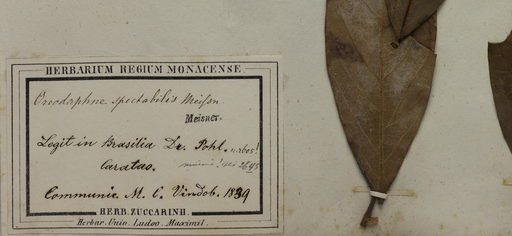 HERBARIUM REGIUM MONACENSE
Oreodaphne spectabilis Meissn
Meisner.
Legit in Brasilia Dr. Pohl.
Caratas. 2645
Communic. M. C. Vindob. 1839
HERB. ZUCCARINII.
Herbar. Univ. Ludov. Maximil.